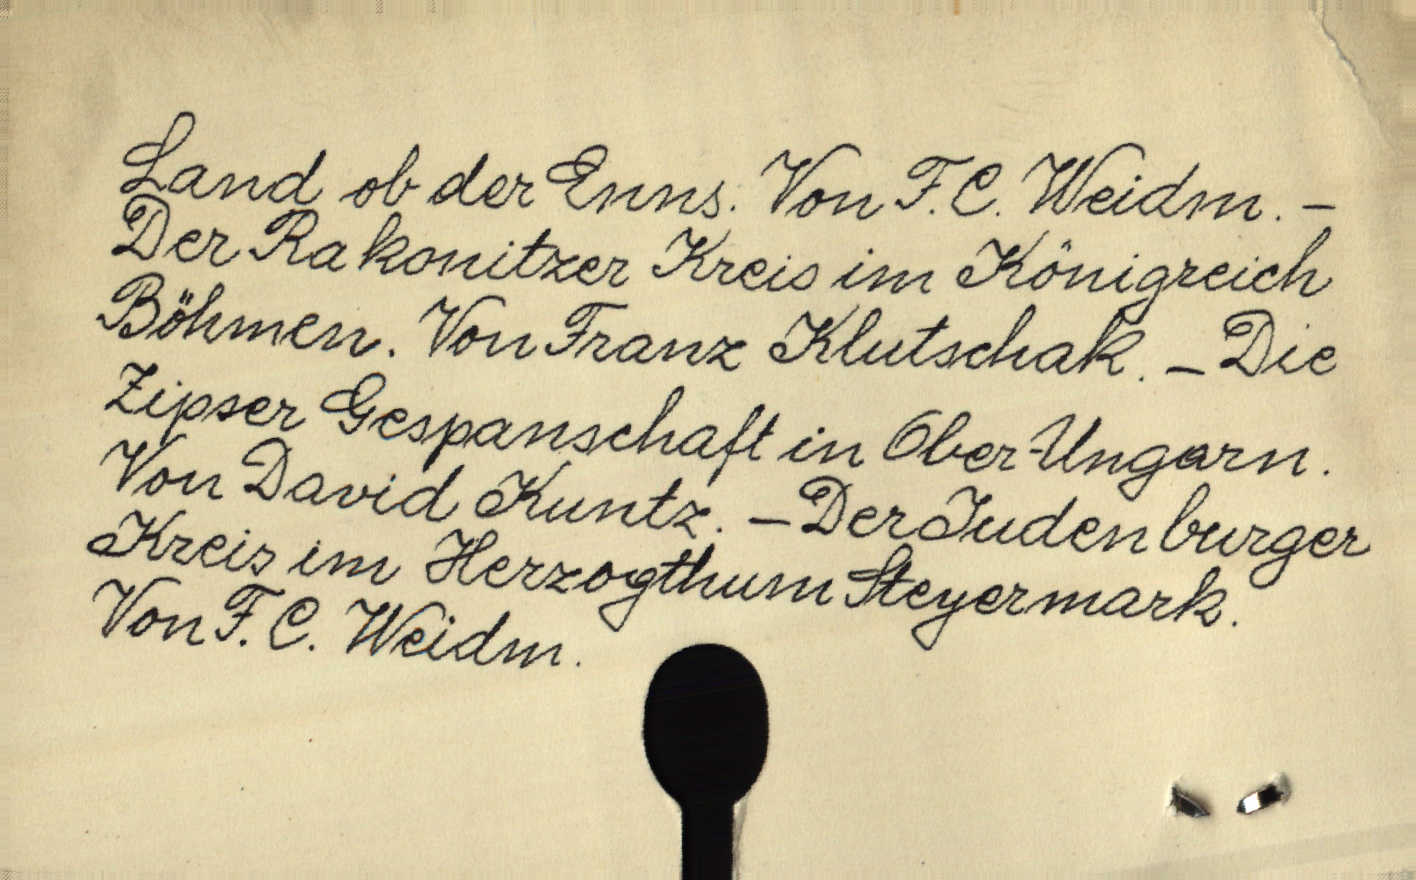 Land ob der Enns. Von F. C. Weidm. –
Der Rakonitzer Kreis im Königreich
Böhmen. Von Franz Klutschak. – Die
Zipser Gespanschaft in Ober-Ungarn.
Von David Kuntz. – Der Judenburger
Kreis im Herzogthum Steyermark.
Von F. C. Weidm.